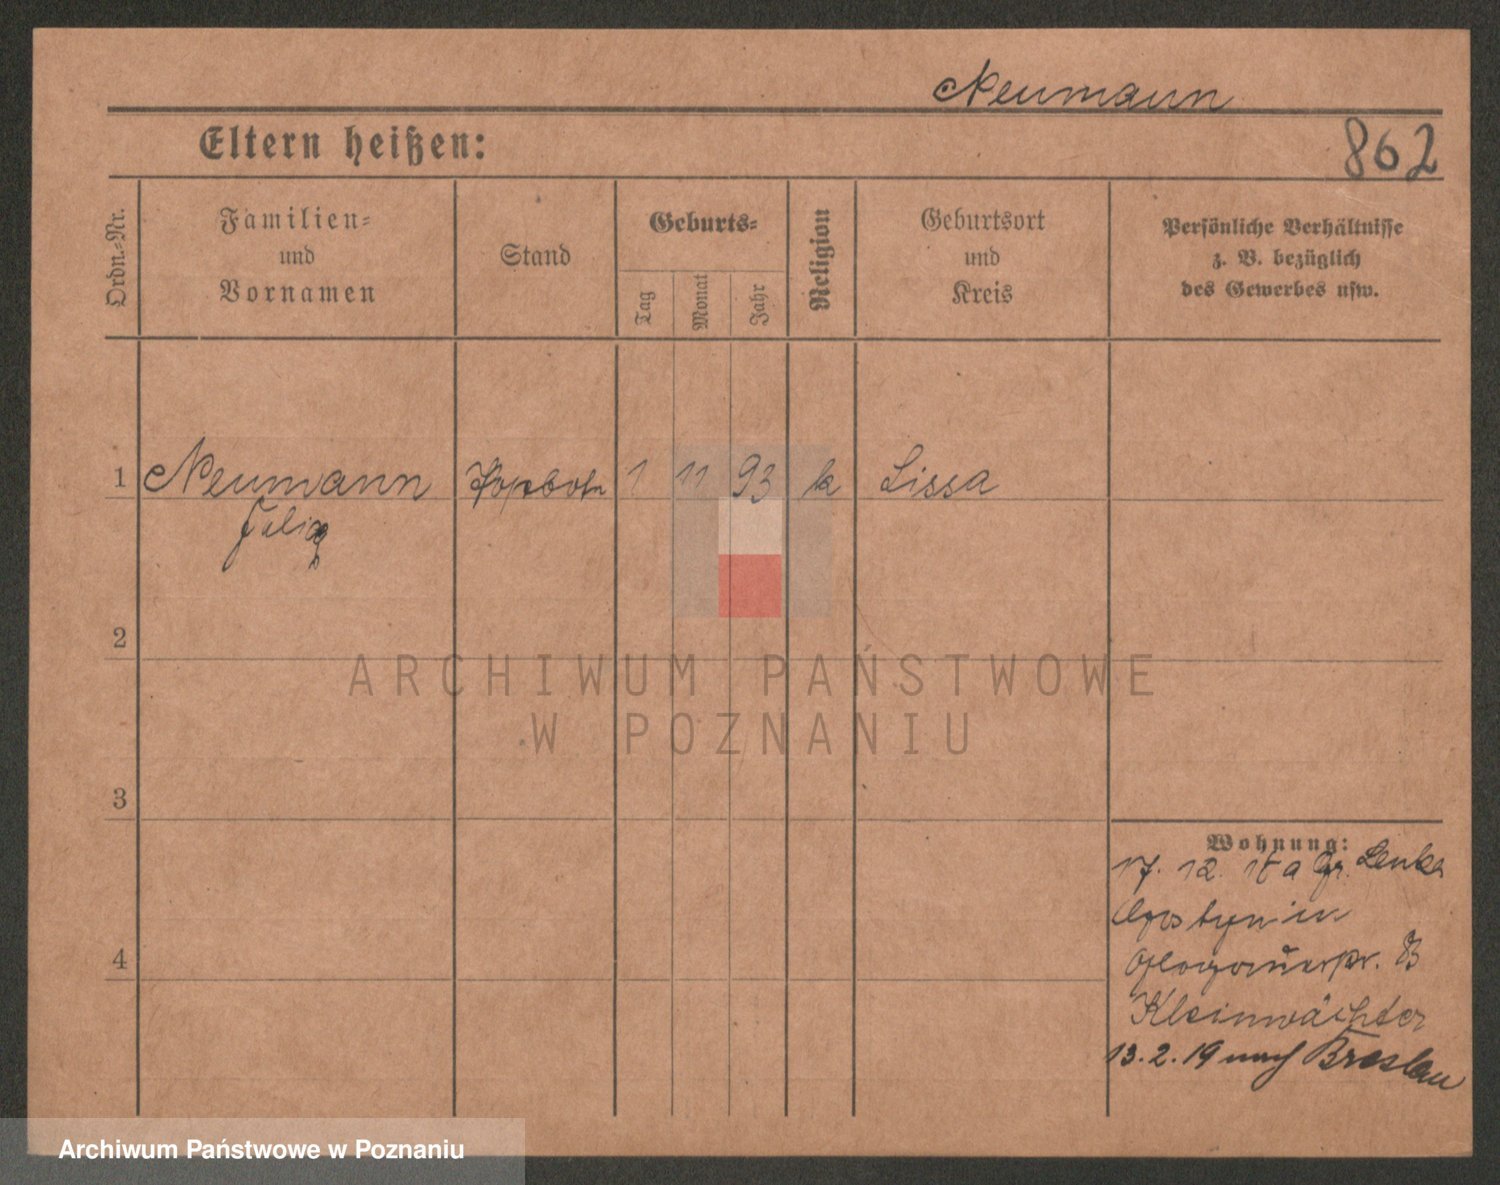 Neumann
Eltern heißen:
862
Ordn.-Nr.
Familien-
und
Vornamen
Stand
Geburts-
Tag
Monat
Jahr
Religion
Geburtsort
und
Kreis
Persönliche Verhältnisse
z. B. bezüglich
des Gewerbes usw.
1 Neumann 1 11 93 k Lissa
2
3
4
Wohnung:
17. 12. 18 a Gr. Lenka
Glogauerstr.
Kleinwächter
13. 2. 19 nach Breslau
ARCHIWUM PAŃSTWOWE
W POZNANIU
Archiwum Państwowe w Poznaniu